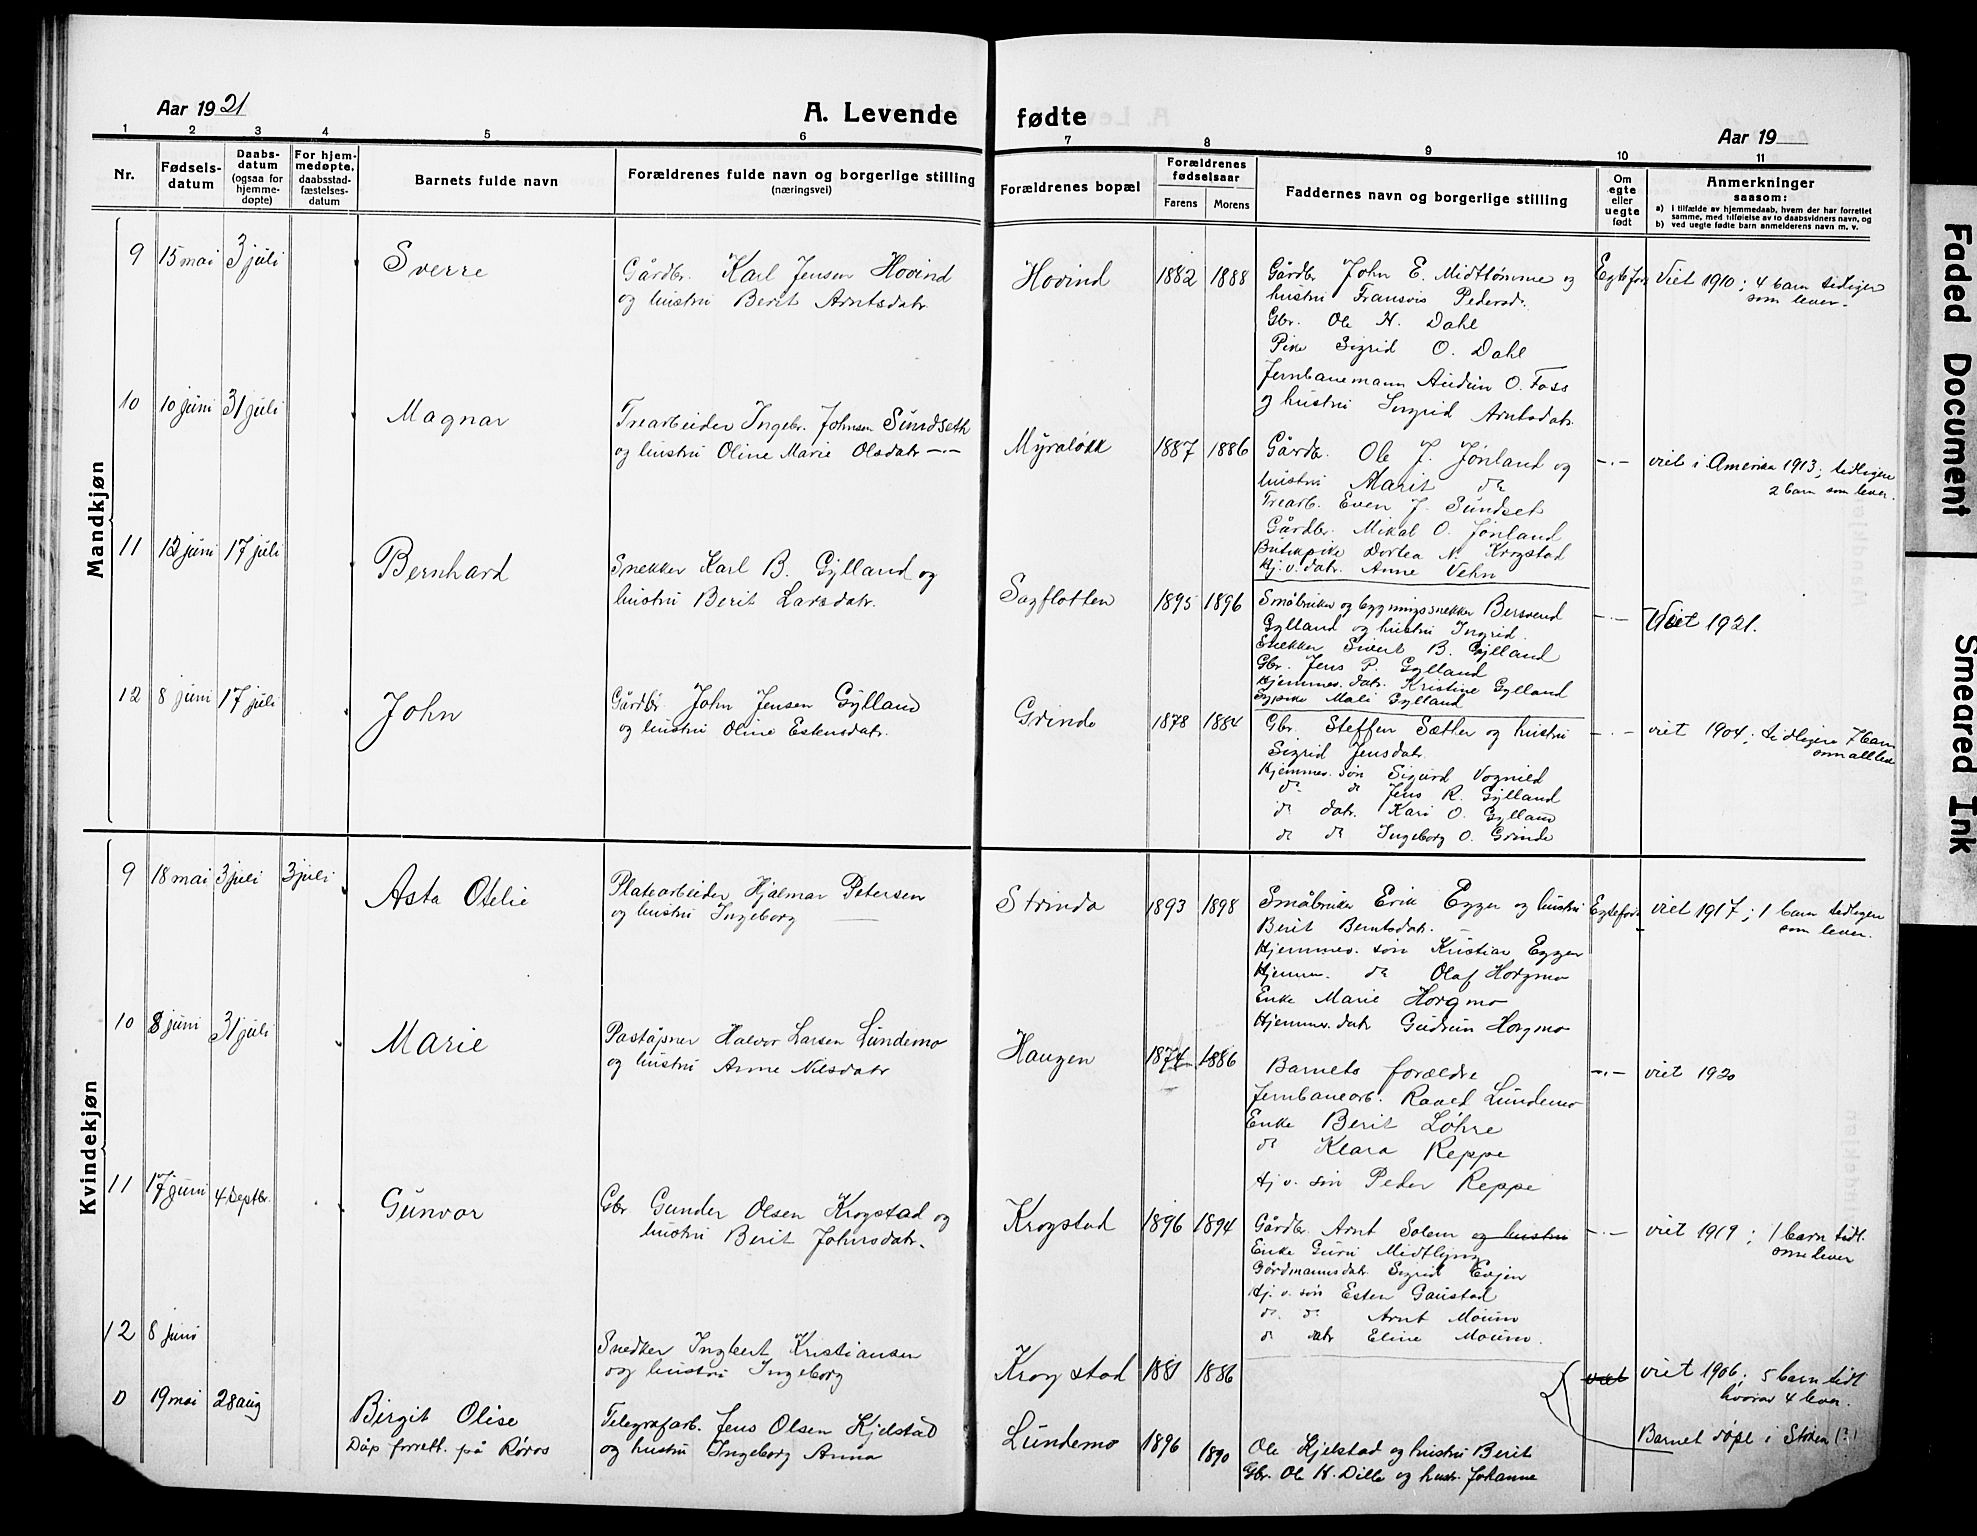 Aar 1921
A. Levende fødte
Aar 19
1 2 3 4 5 6 7 8 9 10 11
Nr.
Fødsels-
datum
Daabs-
datum
(ogsaa for
hjemme-
døpte)
For hjem-
medøpte,
daabsstad-
fæstelses-
datum
Barnets fulde navn
Forældrenes fulde navn og borgerlige stilling
(næringsvei)
Forældrenes bopæl
Forældrenes
fødselsaar
Farens Morens
Faddernes navn og borgerlige stilling
Om
egte
eller
uegte
født
Anmerkninger
saasom:
a) i tilfælde av hjemmedaab, hvem der har forrettet
samme, med tilføielse av to daabsvidners navn, og
b) ved uegte fødte barn anmelderens navn m. v.
Mandkjøn
9 15 mai 3 juli Sverre
Gårdbr. Karl Jensen Hovind
og hustru Berit Arntsdatr.
Hovind 1882 1888
Gårdbr John E. Midttømme og
hustru Fransvis Pedersd.
Gbr. Ole H. Dahl
Pike Sigrid O. Dahl
Jernbanemann Audun O. Foss
og hustru Ingrid Arntsdatr.
Egtefød
Viet 1910; 4 barn tidliger
som lever.
10 10 juni 31 juli Magnar
Trearbeider Ingebr. Johnsen Sundseth
og hustru Oline Marie Olsdatr -·-
Myraløkk 1887 1886
Gårdbr. Ole J. Jønland og
hustru Marit do
Trearb. Even J. Sundset
Gårdbr. Mikal O. Jønland
Butikpike Dortea N. Krogstad
Hj.v. datr. Anne Vehn
-·-
viet i Amerika 1913; tidligere
2 barn som lever.
11 12 juni 17 juli Bernhard
Snekker Karl B. Gylland og
hustru Berit Larsdatr.
Sagflotten 1895 1896
Småbruker og bygningssnekker Bersvend
Gylland og hustru Ingrid.
Snekker Sivert B. Gylland
Gbr. Jens P. Gylland
Hjemmev. datr. Kristine Gylland
Sypike Mali Gylland
-·-
Viet 1921.
12 8 juni 17 juli John
Gårdbr John Jensen Gylland
og hustru Oline Estensdatr.
Grindo 1878 1884
Gbr. Steffen Sætler og hustru
Sigrid Jensdatr.
Hjemmev. søn Sigurd Vognild
do do Jens R. Gylland
do datr. Kari O. Gylland
do do Ingeborg O. Grinde
-·-
viet 1904; tidligere 7 barn
Kvindekjøn
9 18 mai 3 juli 3 juli Asta Otelie
Platearbeider Hjalmar Petersen
og hustru Ingeborg
Strinda 1893 1898
Småbruker Erik Eggen og hustru
Berit Berntsdatr.
Hjemmev. søn Kristian Eggen
Hjemm. do Olaf Horgmo
Enke Marie Horgmo
Hjemmev. datr Gudrun Horgmo
Egtefødt
viet 1917; 1 barn tidligere
som lever.
10 8 juni 31 juli Marie
Poståpner Halvor Larsen Lundemo
og hustru Anne Nilsdatr
Haugen 1874 1886
Barnets forældre
Jernbanearb. Roald Lundemo
Enke Berit Løhre
do Klara Reppe
Hj v. søn Peder Reppe
-·-
viet 1920
11 17 juni 4 Septbr. Gunvor
Gbr Gunder Olsen Krogstad og
hustru Berit Johnsdatr.
Krogstad 1896 1894
Gårdbr. Arnt Solem og hustru
Enke Guru Midtlyng
Gårdmannsdatr. Sigrid Evjen
Hj. v. søn Esten Gaustad
do do Arnt Moum
do datr Eline Moum.
-·-
viet 1919; 1 barn tidl.
som lever
12 8 juni
Snedker Ingbert Kristiansen
og hustru Ingeborg
Krogstad 1881 1886
viet
viet 1906; 5 barn tidl
hvorav 4 lever.
0 19 mai 28 aug
Birgit Olise
Dåp forrett. på Røros
Telegrafarb. Jens Olsen Kjelstad
og hustru Ingeborg Anna
Lundemo 1896 1890
Ole Kjelstad og hustru Berit
Gbr. Ole K. Dille og hustr. Johanne
Barnet døpt i Støren (?)
Faded Document
Smeared Ink